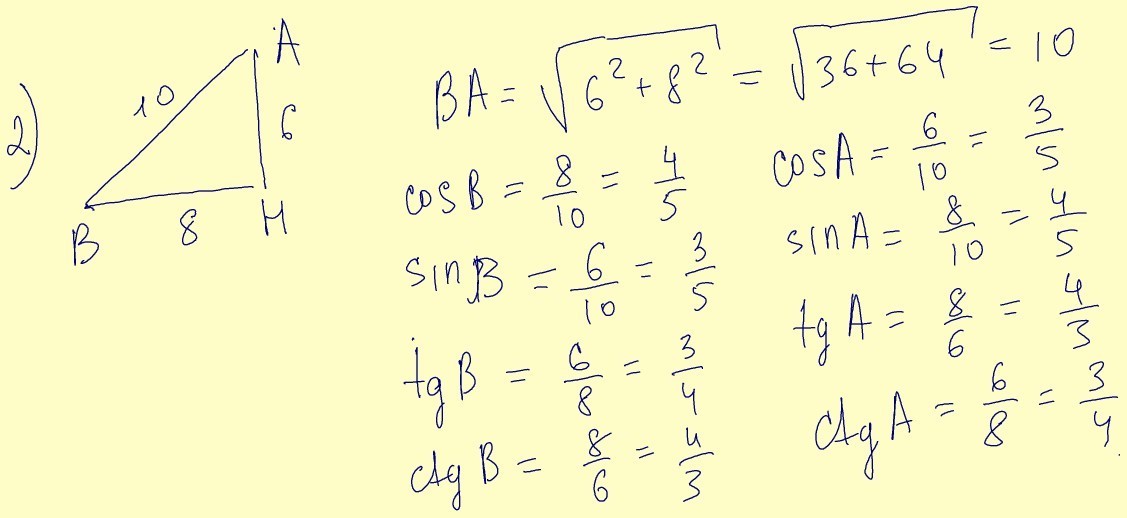 2)
A
10
6
8
B
H
BA = √(6² + 8²) = √(36 + 64) = 10
cos B = 8/10 = 4/5
sin B = 6/10 = 3/5
tg B = 6/8 = 3/4
ctg B = 8/6 = 4/3
cos A = 6/10 = 3/5
sin A = 8/10 = 4/5
tg A = 8/6 = 4/3
ctg A = 6/8 = 3/4